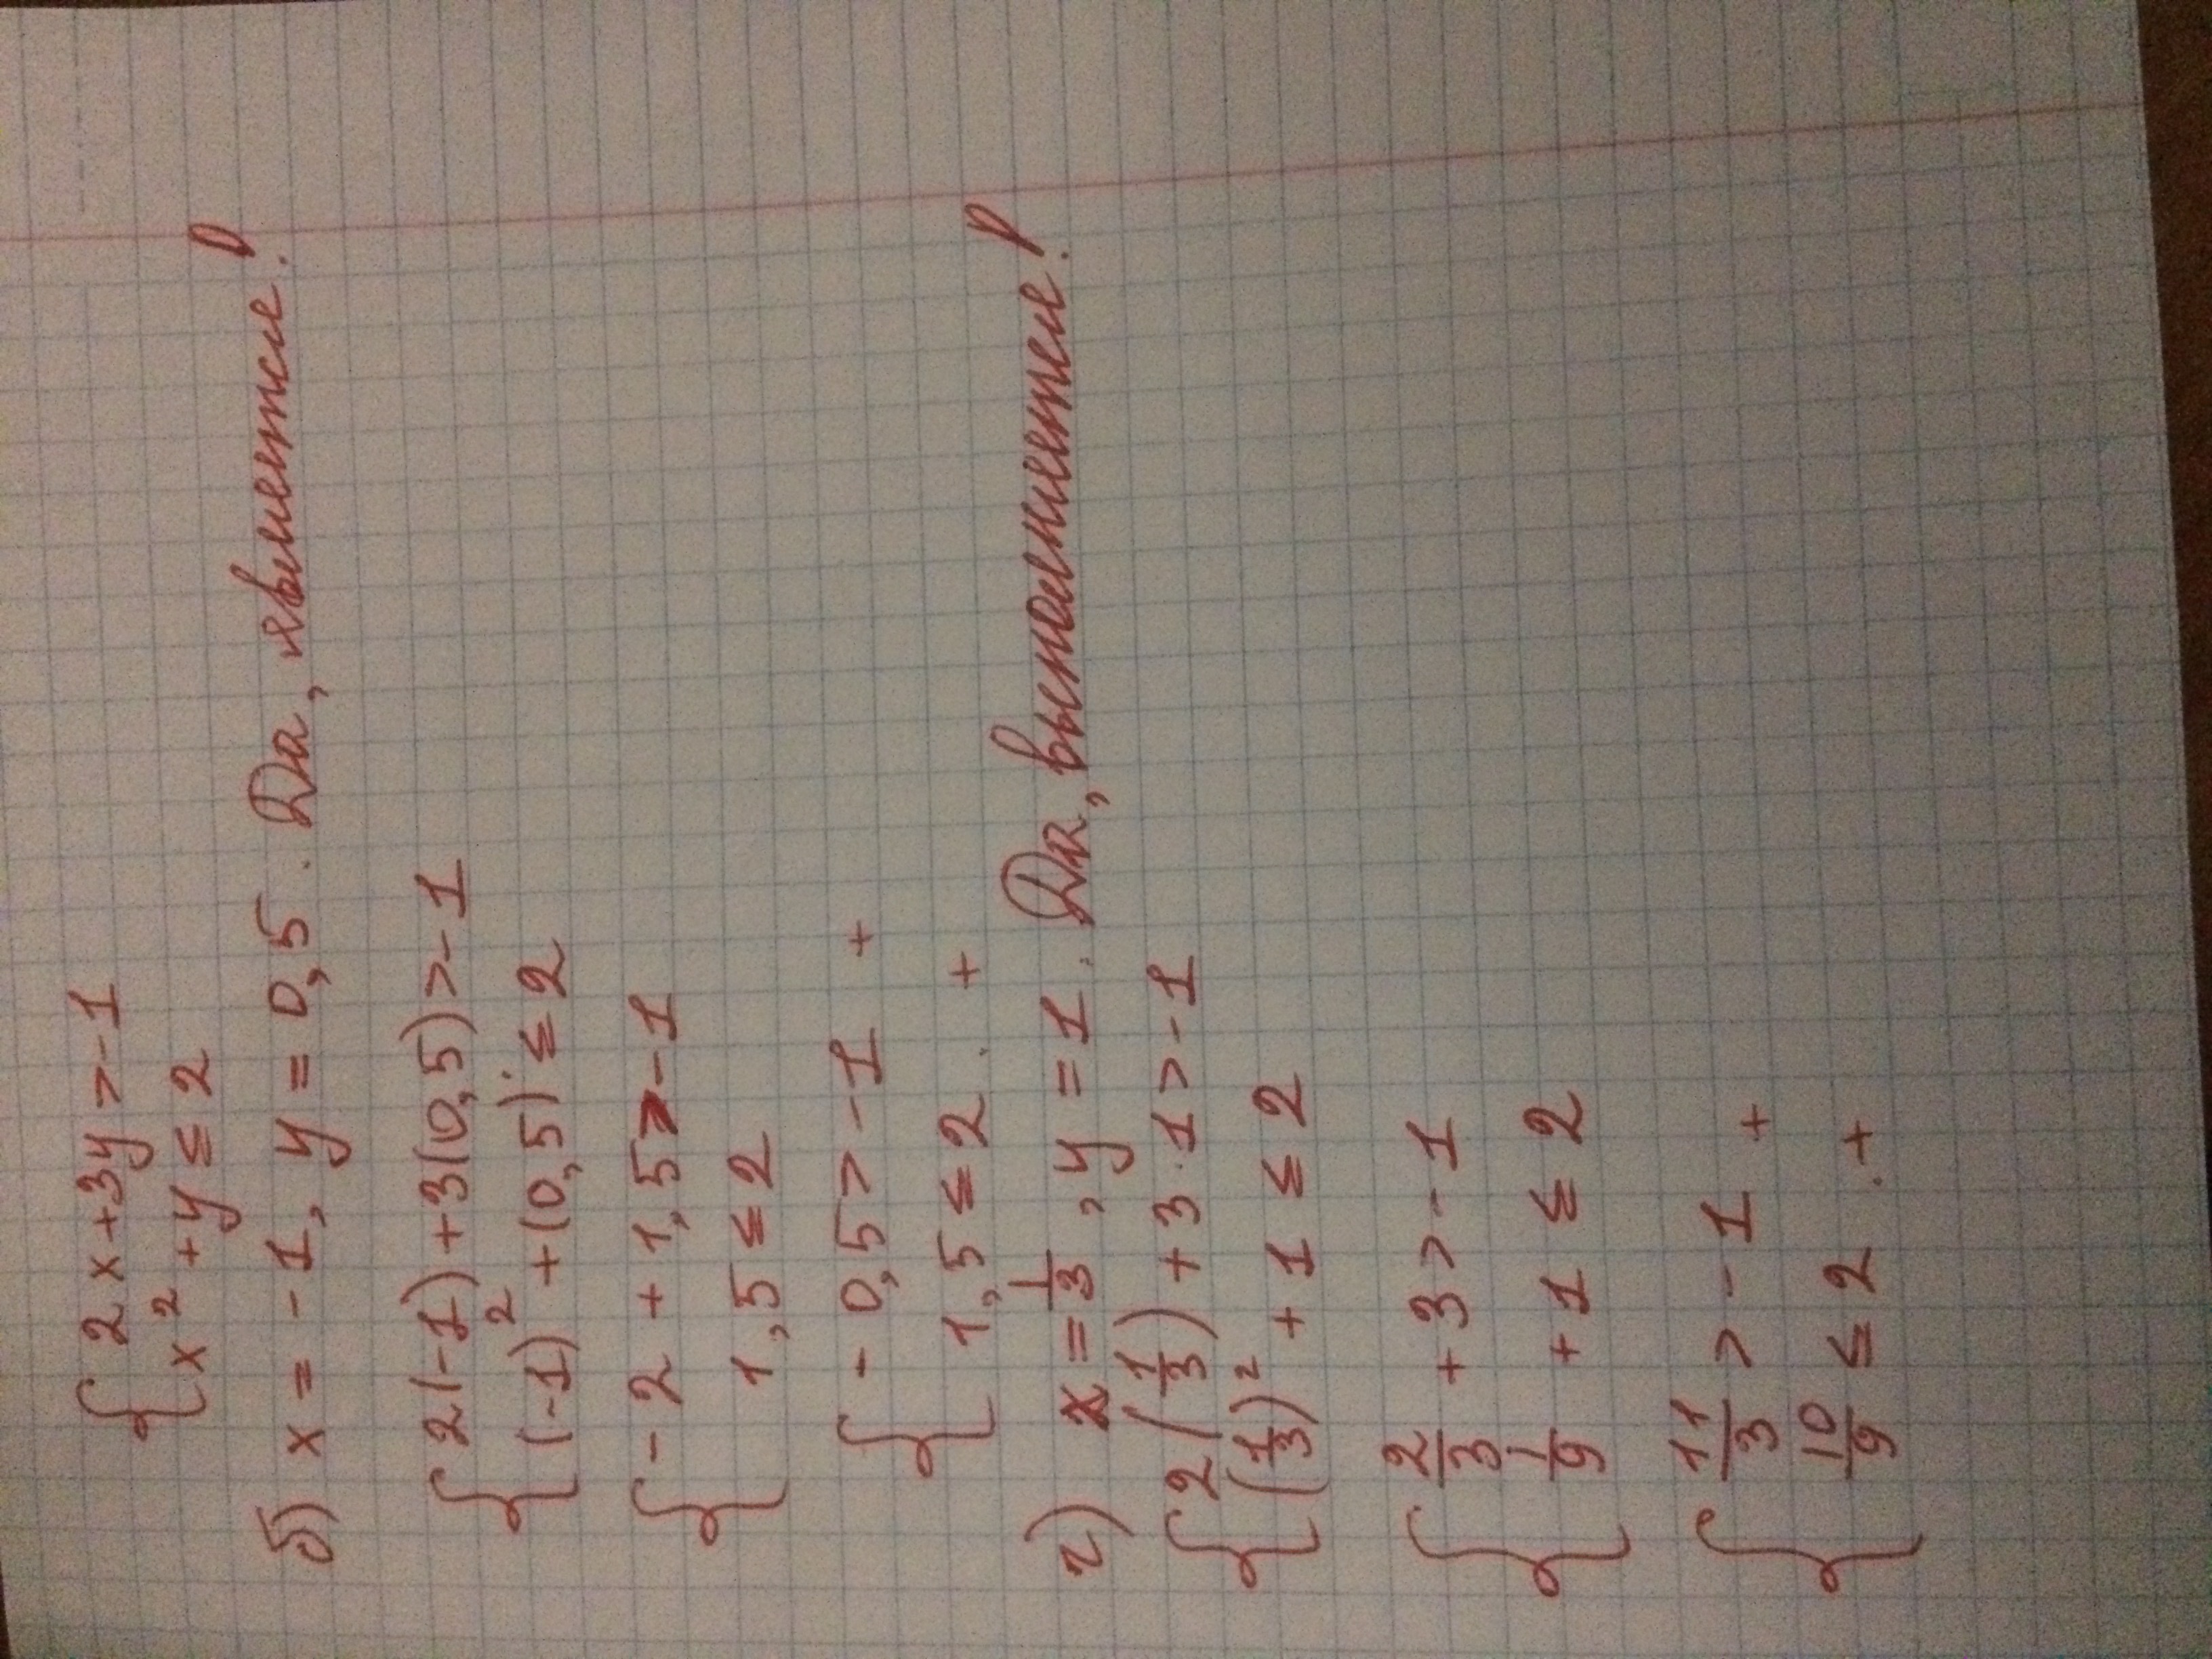 { 2x+3y>-1
x² + y ≤ 2
б) x = -1, y = 0,5. Да, является!
{ 2(-1)+3(0,5)>-1
(-1)² + (0,5) ≤ 2
{ -2 + 1,5>-1
1,5 ≤ 2
{ -0,5> -1 +
1,5 ≤ 2 . +
г) x = 1/3, y = 1. Да,
{ 2(1/3) + 3·1>-1
(1/3)² + 1 ≤ 2
{ 2/3 + 3>-1
1/9 + 1 ≤ 2
{ 11/3 > -1 +
10/9 ≤ 2 . +